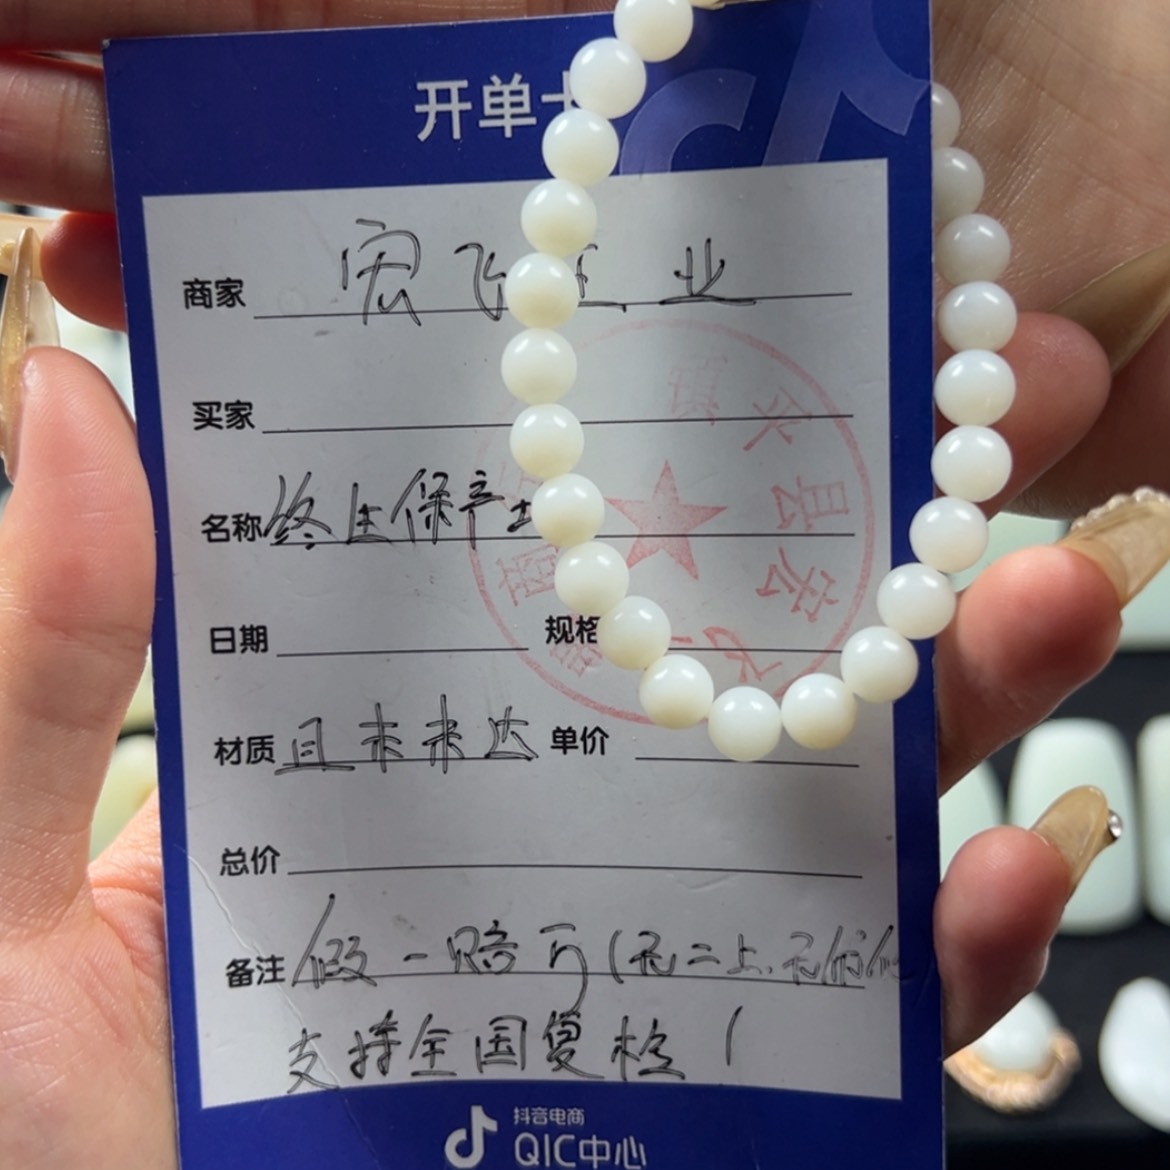 开单
商家 宏飞玉业
买家
名称 终生保产地
日期 规格
材质 且末未达 单价
总价
备注 假一赔万(无二上.无优化
支持全国复检!
抖音电商
QIC中心